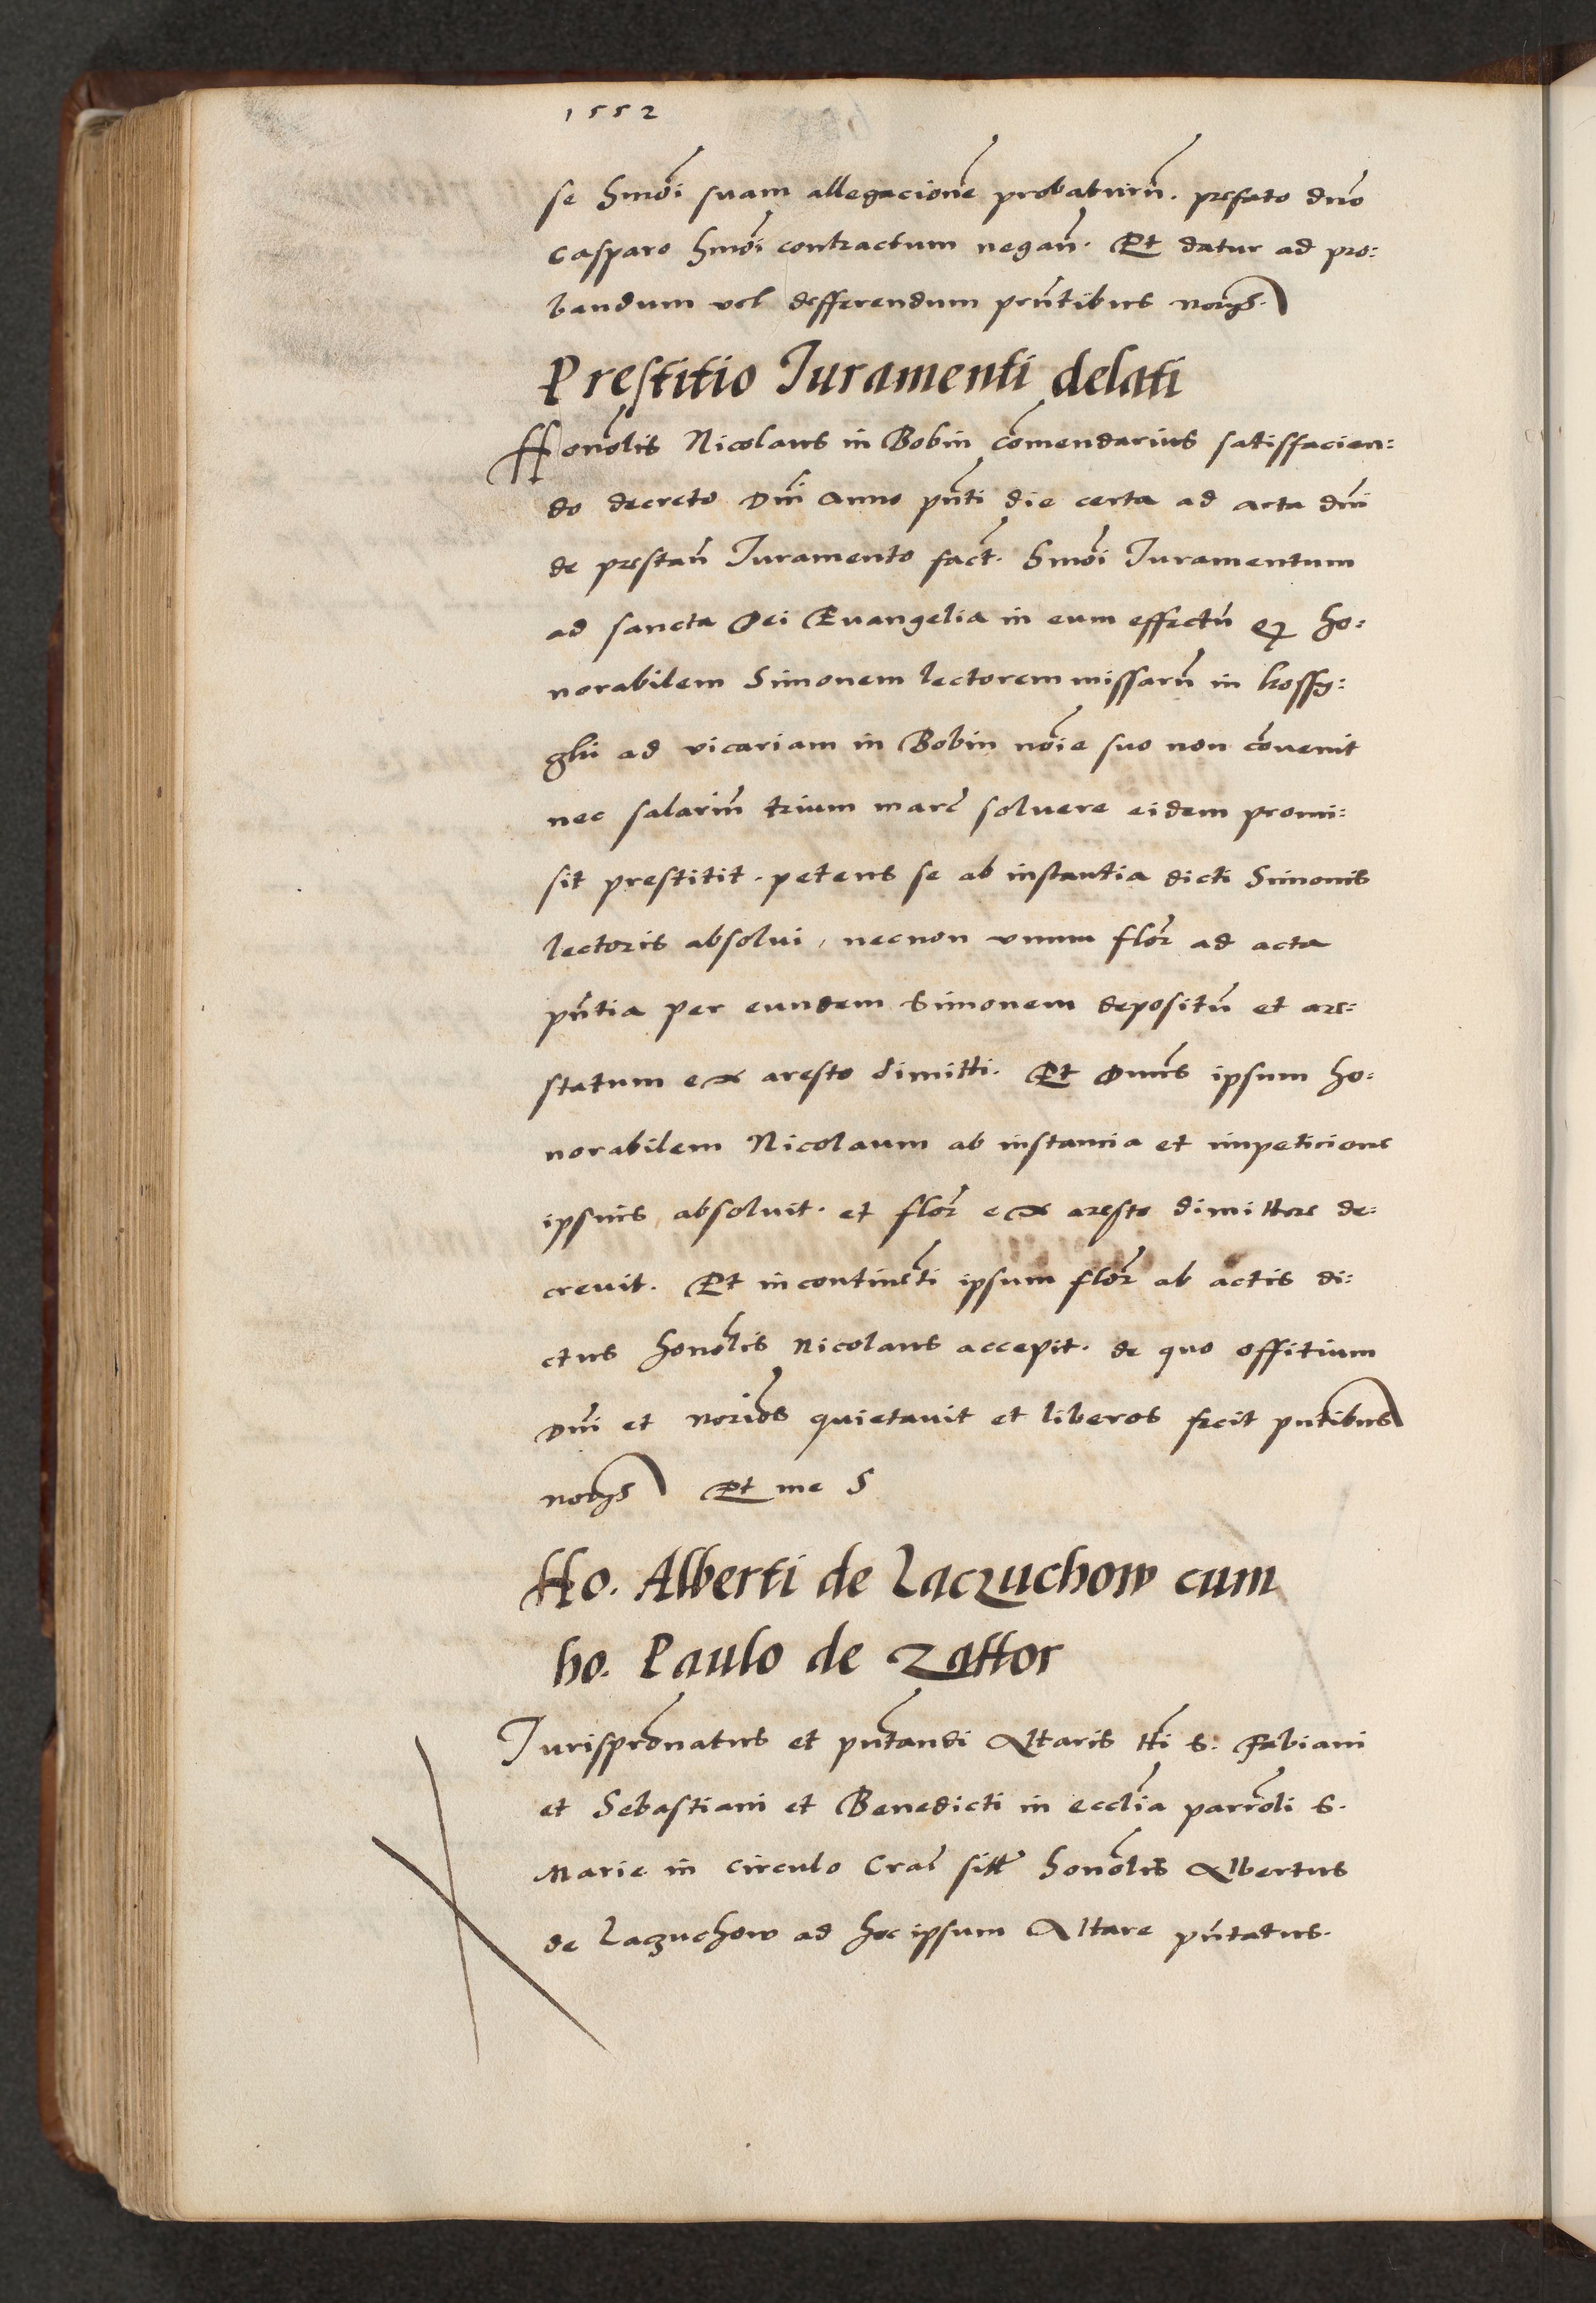 1552
se hmoi suam allegacione probaturu. prefato dno
Casparo hmoi contractum negan. Et datur ad pro:
bandum vel defferendum pntibus norys.
Prestitio Iuramenti delati
Honolis Nicolaus in Bobin comendarius satisfacien:
do decreto Dni Anno pnti die certa ad acta dni
de prestan Iuramento fact. hmoi Iuramentum
ad sancta Dei Euangelia in eum effectu q ho:
norabilem Simonem lectorem missaru in kossy:
glii ad vicariam in Bobin noie suo non couenit
nec salariu trium marc soluere eidem promi:
sit prestitit. petens se ab instantia dicti Simonis
lectoris absolui, necnon vnum flor ad acta
pntia per eundem Simonem depositu et are:
statum ex aresto dimitti. Et Dnus ipsum ho:
norabilem Nicolaum ab instancia et impeticione
ipsius absoluit. et flor ex aresto dimittere de:
creuit. Et incontineti ipsum flor ab actis di:
ctus honolis Nicolaus accepit. de quo offitium
Dni et norios quietauit et liberos fecit pntibus
norys Et me S
Ho. Alberti de Laczuchow cum
ho. Paulo de Zattor
Iurispronatus et pntandi Altaris tti S. Fabiani
et Sebastiani et Benedicti in ecclia parroli S.
Marie in circulo Crac sitt honolis Albertus
de Laczuchow ad hoc ipsum Altare pntatus.